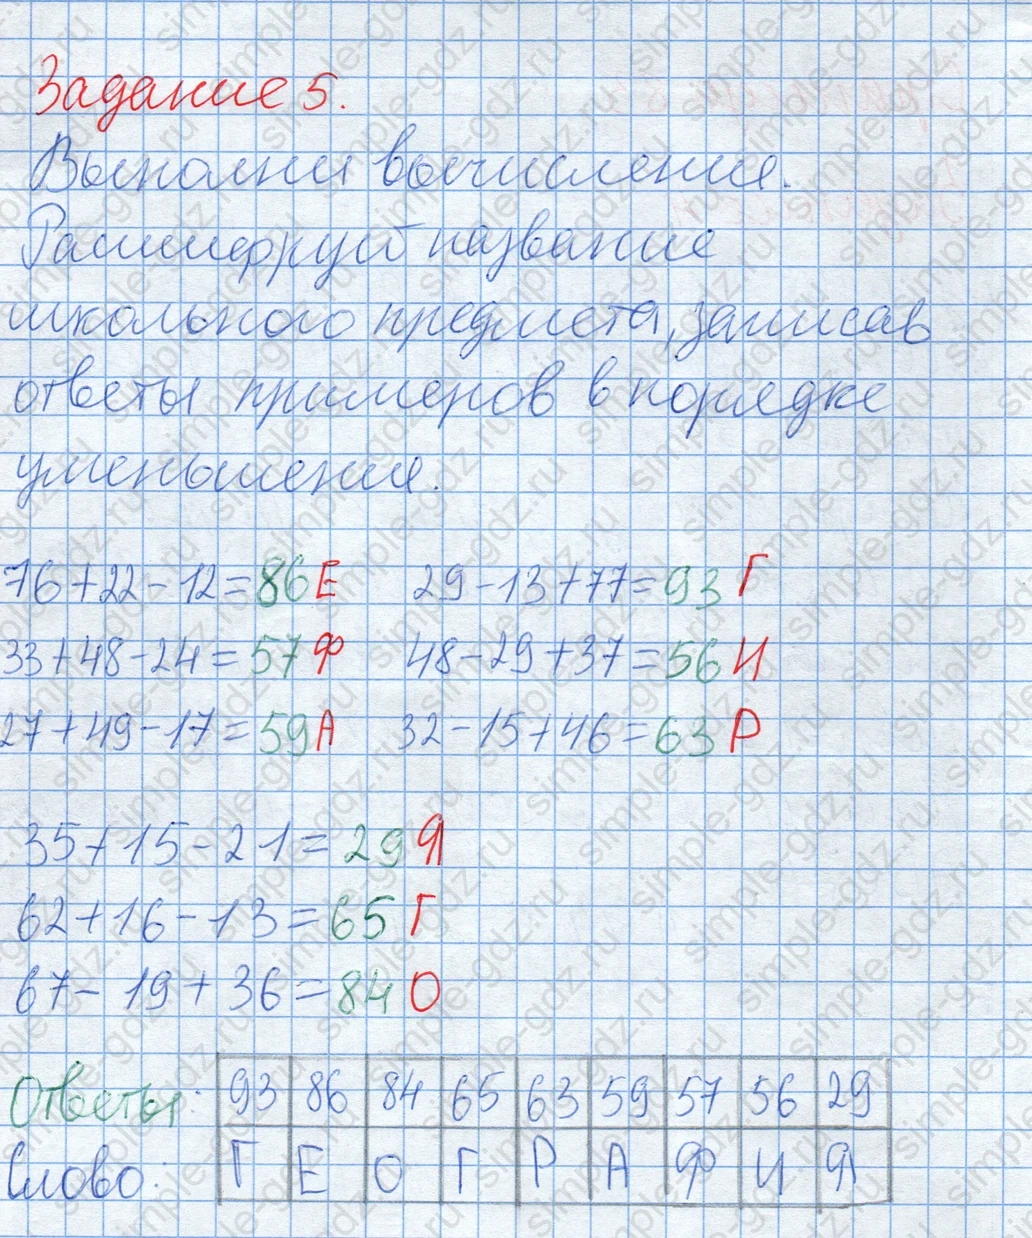 Задание 5.
Выполни вычисления.
Расшифруй название
школьного предмета, записав
ответы примеров в порядке
уменьшения.
76+22-12=86 Е 29-13+77=93 Г
33+48-24=57 Ф 48-29+37=56 И
27+49-17=59 А 32-15+46=63 Р
35+15-21=29 Я
62+16-13=65 Г
67-19+36=84 О
Ответы: 93 86 84 65 63 59 57 56 29
Слово: Г Е О Г Р А Ф И Я
simple-gdz.ru